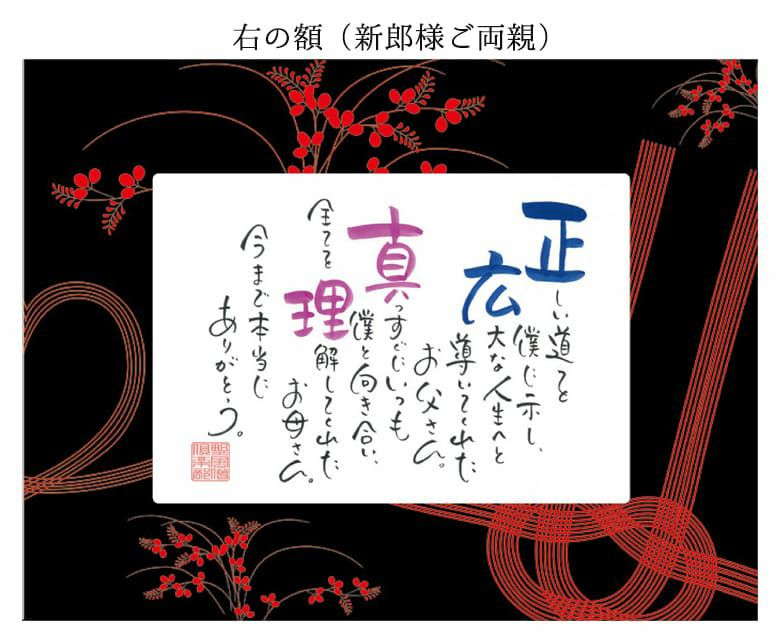 右の額（新郎様ご両親）
正しい道てと
僕に示し、
広大な人生へと
導いてくれた
お父さん。
真っすぐにいつも
僕と向き合い、
全てを理解してくれた
お母さん。
今まで本当に
ありがとう。